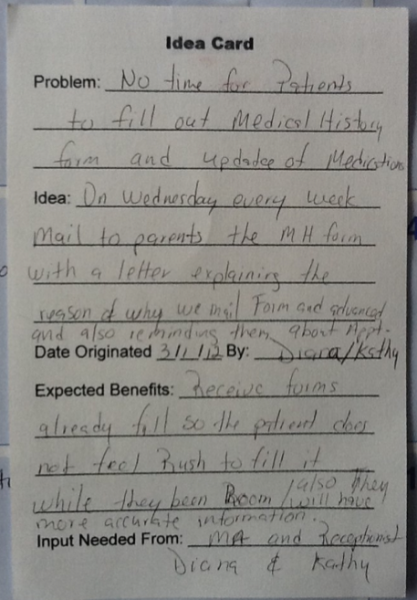 Idea Card
Problem: No time for Patients
to fill out Medical History
form and updadce of Medications
Idea: On Wednesday every week
Mail to parents the MH form
with a letter explaining the
reason of why we mail Form and advanced
and also reminding them about Appt.
Date Originated 3/1/12 By: Diana/Kathy
Expected Benefits: Receive forms
already fill so the patient does
not feel Rush to fill it
while they been Room / also They will have
more accurate information.
Input Needed From: MA and Receptionist
Diana & Kathy